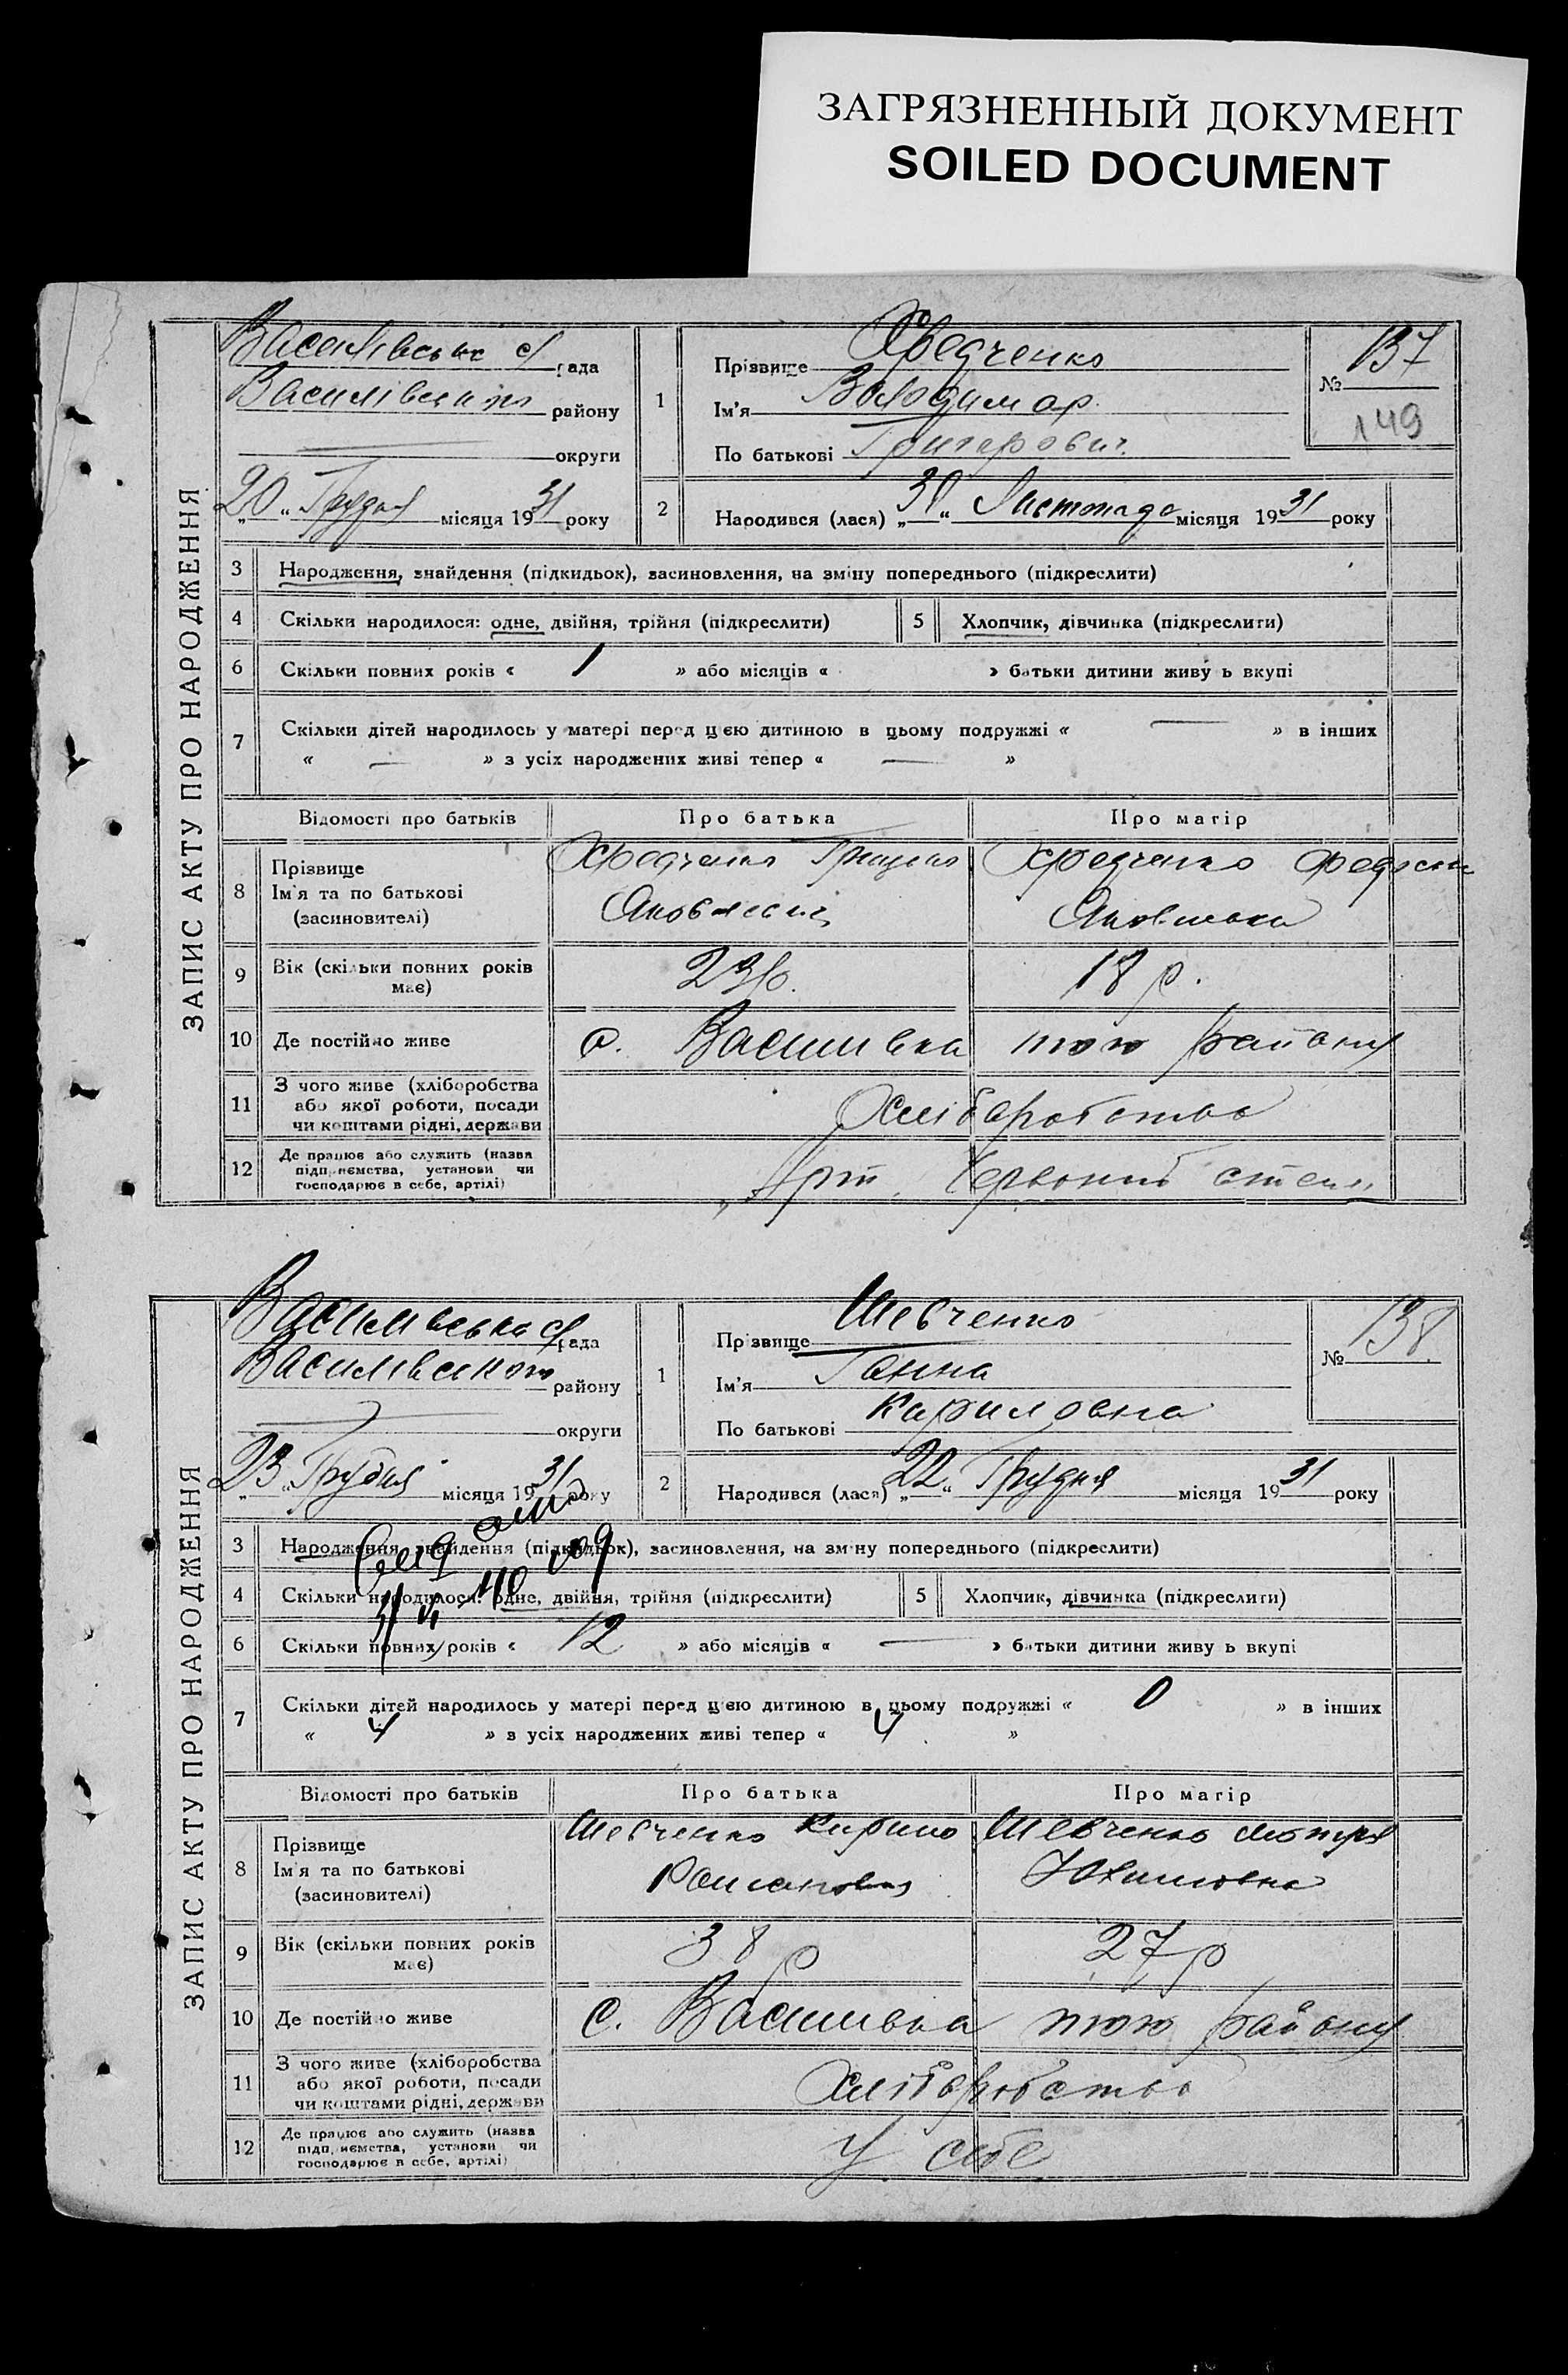 ЗАГРЯЗНЕННЫЙ ДОКУМЕНТ
SOILED DOCUMENT
ЗАПИС АКТУ ПРО НАРОДЖЕННЯ
Василівська с/рада
Василівського району
округи
„20“ Грудня місяця 1931 року
1 Прізвище Хведченко
Ім'я Володимир
По батькові Григорович
№ 137
149
2 Народився (лася) „30“ Листопада місяця 1931 року
3 Народження, знайдення (підкидьок), засиновлення, на зміну попереднього (підкреслити)
4 Скільки народилося: одне, двійня, трійня (підкреслити) 5 Хлопчик, дівчинка (підкреслити)
6 Скільки повних років « 1 » або місяців « » батьки дитини живуть вкупі
7 Скільки дітей народилось у матері перед цією дитиною в цьому подружжі « — » в інших
« — » з усіх народжених живі тепер « — »
Відомості про батьків Про батька Про матір
8 Прізвище
Ім'я та по батькові
(засиновителі)
Хведченко Грицько
Яковлевич
Хведченко
Яковлівна
9 Вік (скільки повних років має) 23 р. 18 р.
10 Де постійно живе с. Василівка того району
11 З чого живе (хліборобства
або якої роботи, посади
чи коштами рідні, держави
Хліборобство
12 Де працює або служить (назва
підприємства, установи чи
господарює в себе, артілі)
„Арт. Червоний степ“
ЗАПИС АКТУ ПРО НАРОДЖЕННЯ
Василівська с/рада
Василівского району
округи
„23“ Грудня місяця 1931 року
1 Прізвище Шевченко
Ім'я Ганна
По батькові Кириловна
№ 138.
2 Народився (лася) „22“ Грудня місяця 1931 року
3 Народження, знайдення (підкидьок), засиновлення, на зміну попереднього (підкреслити)
4 Скільки народилося: одне, двійня, трійня (підкреслити) 5 Хлопчик, дівчинка (підкреслити)
6 Скільки повних років « 12 » або місяців « — » батьки дитини живуть вкупі
7 Скільки дітей народилось у матері перед цією дитиною в цьому подружжі « 0 » в інших
« 4 » з усіх народжених живі тепер « 4 »
Відомості про батьків Про батька Про матір
8 Прізвище
Ім'я та по батькові
(засиновителі)
Шевченко Кирило
Романович
Шевченко Мотря
Юхимовна
9 Вік (скільки повних років має) 38 р 27 р
10 Де постійно живе с. Василівка того району
11 З чого живе (хліборобства
або якої роботи, посади
чи коштами рідні, держави
Хліборобство
12 Де працює або служить (назва
підприємства, установи чи
господарює в себе, артілі)
У себе